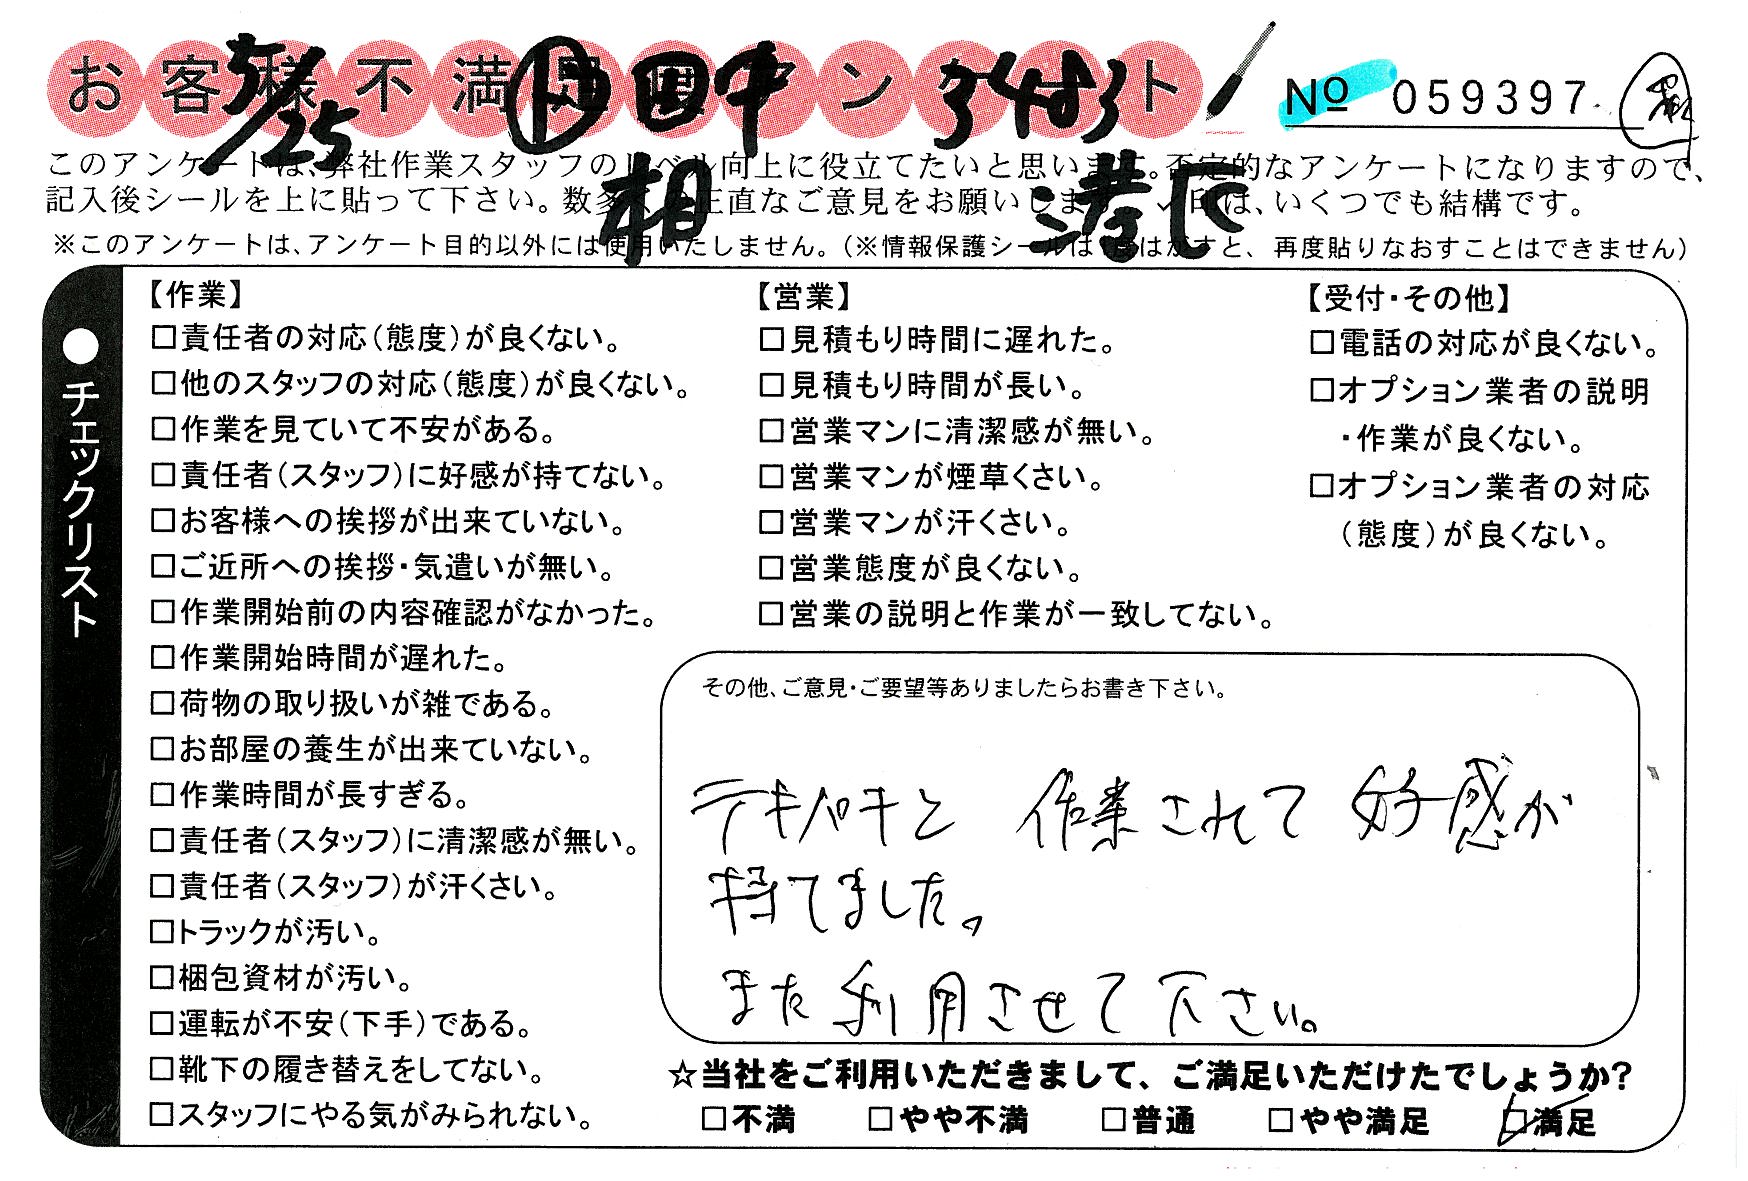 お客様不満足度アンケート
5/25 ト 田中 347付3
相 港区
No 059397
このアンケートは、弊社作業スタッフのレベル向上に役立てたいと思います。否定的なアンケートになりますので、
記入後シールを上に貼って下さい。数多くの正直なご意見をお願いします。✓印は、いくつでも結構です。
※このアンケートは、アンケート目的以外には使用いたしません。(※情報保護シールは1度はがすと、再度貼りなおすことはできません)
●チェックリスト
【作業】
□責任者の対応(態度)が良くない。
□他のスタッフの対応(態度)が良くない。
□作業を見ていて不安がある。
□責任者(スタッフ)に好感が持てない。
□お客様への挨拶が出来ていない。
□ご近所への挨拶・気遣いが無い。
□作業開始前の内容確認がなかった。
□作業開始時間が遅れた。
□荷物の取り扱いが雑である。
□お部屋の養生が出来ていない。
□作業時間が長すぎる。
□責任者(スタッフ)に清潔感が無い。
□責任者(スタッフ)が汗くさい。
□トラックが汚い。
□梱包資材が汚い。
□運転が不安(下手)である。
□靴下の履き替えをしてない。
□スタッフにやる気がみられない。
【営業】
□見積もり時間に遅れた。
□見積もり時間が長い。
□営業マンに清潔感が無い。
□営業マンが煙草くさい。
□営業マンが汗くさい。
□営業態度が良くない。
□営業の説明と作業が一致してない。
【受付・その他】
□電話の対応が良くない。
□オプション業者の説明
・作業が良くない。
□オプション業者の対応
(態度)が良くない。
その他、ご意見・ご要望等ありましたらお書き下さい。
テキパキと 作業されて 好感が
持てました。
また利用させて下さい。
☆当社をご利用いただきまして、ご満足いただけたでしょうか?
□不満 □やや不満 □普通 □やや満足 ☑満足